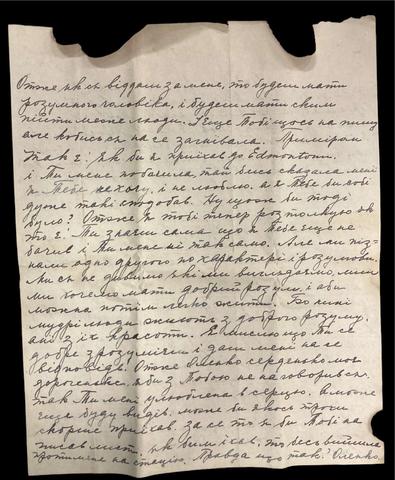 Отже як ся віддаш за мене, то будеш мати
розумного чоловіка, і будеш мати з ким
пійти меже люди. І єще Тобі щось напишу
але кобись на се загнівала. Примірам
Так є: як би я приїхав до Edmontonи.
і Ти мене побачила, тай бись сказала мені
я Тебе не хочу, і не люблю. а я Тебе би собі
дуже такі сподобав. Ну щож би тоді
було? Отже я тобі тепер розтолкую як
то є: Ти знаєш сама що я Тебе еще не
бачив і Ти мене ні так само. Але ми піз-
нали одно другого по характері і розумови.
Ми ся не дивимо які ми виглядаємо, мим
ми хочемо мати добрий розум, і аби
можна потім легко жити. Бо нині
мудрі люди жиють з доброго розуму,
ані з їх красоти. Я мислю що Ти се
добре зрозумієш і даш мені на се
відповідь. Отже Оленко серденько моє
дороженьке, як би з Тобою не наговоривсь.
так Ти мені улюблена в серцю. А може
еще буду видів. може би якось трохи
скорше приїхав. за се то я би Тобі на
писав лист, як вим їхав, то бесь вийшла
протимене на стацію. Правда що так? Оленко